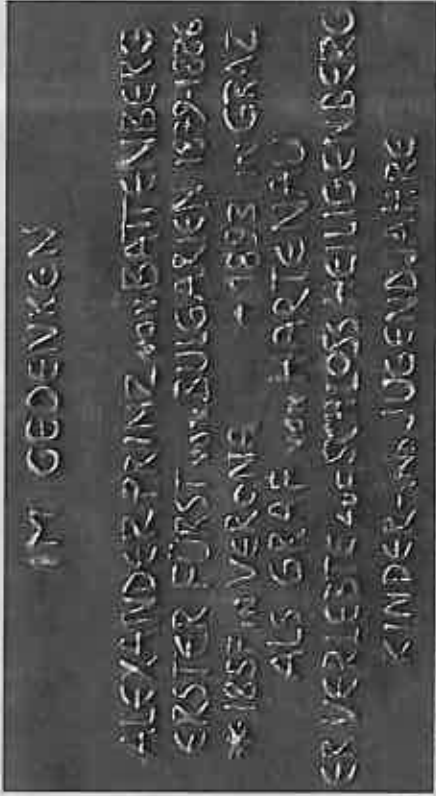 IM GEDENKEN
ALEXANDER PRINZ VON BATTENBERG
ERSTER FÜRST VON BULGARIEN 1879-1886
* 1857 IN VERONA † 1893 IN GRAZ
ALS GRAF VON HARTENAU
ER VERLEBTE AUF SCHLOSS HEILIGENBERG
KINDER- UND JUGENDJAHRE